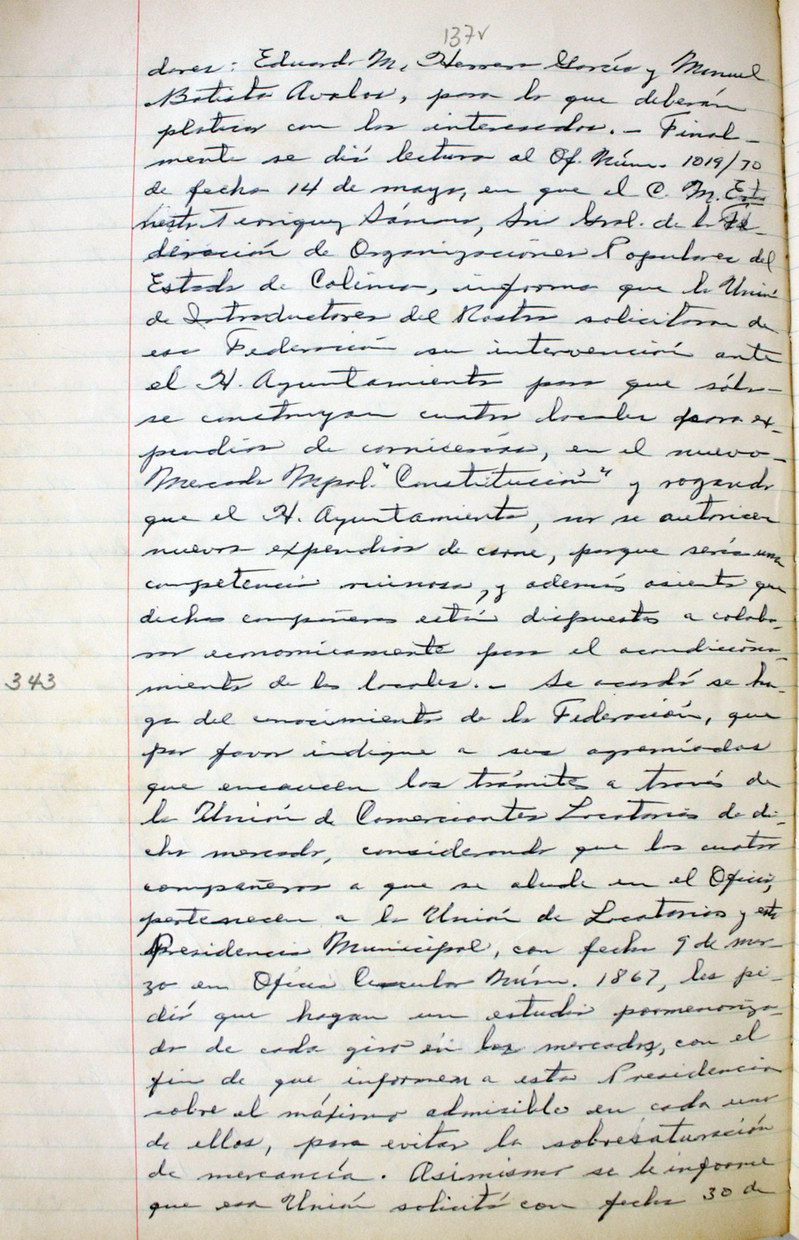 137v
dores: Eduardo M. Herrera García y Manuel
Batista Avalos, para lo que deberán
platicar con los interesados.- Final-
mente se dió lectura al Of. Núm. 1019/70
de fecha 14 de mayo, en que el C. M.
Sámano, Sri Gral. de la Fe-
deración de Organizaciones Populares del
Estado de Colima, informa que la Unión
de Introductores del Rastro solicitaron de
esa Federación su intervención ante
el H. Ayuntamiento para que sólo-
se construyan cuatro locales para ex-
pendios de carnicerías, en el nuevo-
Mercado Mpal. "Constitución" y rogando
que el H. Ayuntamiento, no se autoricen
nuevos expendios de carne, porque sería una
competencia ruinosa, y además asienta que
dichos compañeros están dispuestos a colabo-
rar económicamente para el acondiciona-
343
miento de los locales.- Se acordó se ha-
ga del conocimiento de la Federación, que
por favor indique a sus agremiados
que encaucen los trámites a través de
la Unión de Comerciantes Locatarios de di-
cho mercado, considerando que los cuatro
compañeros a que se alude en el Oficio,
pertenecen a la Unión de Locatarios y esta
Presidencia Municipal, con fecha 9 de mar-
zo en Oficio Circular Núm. 1867, les pi-
dió que hagan un estudio pormenoriza-
do de cada giro en los mercados, con el
fin de que informen a esta Presidencia
sobre el máximo admisible en cada uno
de ellos, para evitar la sobresaturación
de mercancía. Asimismo se le informe
que esa Unión solicitó con fecha 30 de